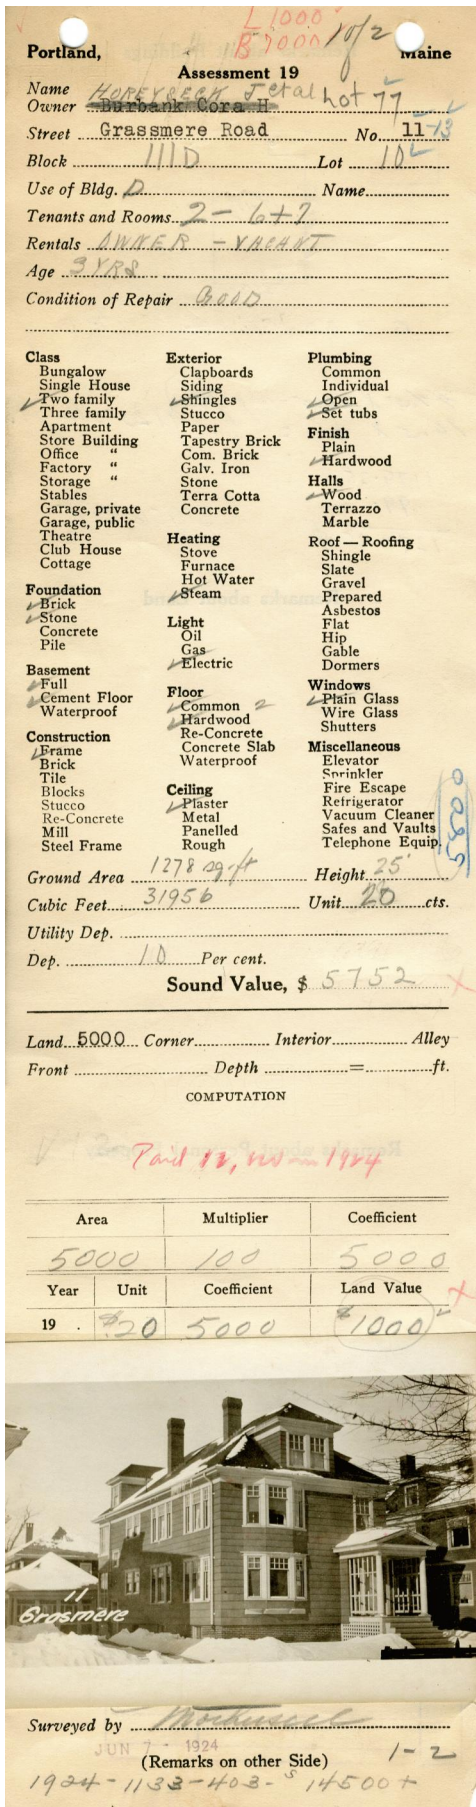 L 1000
B 7000
1 of 2
Portland, Maine
Assessment 19
Name et al Lot 77
Owner Burbank Cora H
Street Grassmere Road No. 11-13
Block 111D Lot 10
Use of Bldg. D Name
Tenants and Rooms 2 - 6+7
Rentals OWNER - VACANT
Age 3 YRS
Condition of Repair GOOD
Class
Bungalow
Single House
Two family
Three family
Apartment
Store Building
Office "
Factory "
Storage "
Stables
Garage, private
Garage, public
Theatre
Club House
Cottage
Foundation
Brick
Stone
Concrete
Pile
Basement
Full
Cement Floor
Waterproof
Construction
Frame
Brick
Tile
Blocks
Stucco
Re-Concrete
Mill
Steel Frame
Exterior
Clapboards
Siding
Shingles
Stucco
Paper
Tapestry Brick
Com. Brick
Galv. Iron
Stone
Terra Cotta
Concrete
Heating
Stove
Furnace
Hot Water
Steam
Light
Oil
Gas
Electric
Floor
Common 2
Hardwood
Re-Concrete
Concrete Slab
Waterproof
Ceiling
Plaster
Metal
Panelled
Rough
Plumbing
Common
Individual
Open
Set tubs
Finish
Plain
Hardwood
Halls
Wood
Terrazzo
Marble
Roof — Roofing
Shingle
Slate
Gravel
Prepared
Asbestos
Flat
Hip
Gable
Dormers
Windows
Plain Glass
Wire Glass
Shutters
Miscellaneous
Elevator
Sprinkler
Fire Escape
Refrigerator
Vacuum Cleaner
Safes and Vaults
Telephone Equip.
Ground Area 1278 sq ft Height 25'
Cubic Feet 31956 Unit 20 cts.
Utility Dep.
Dep. 10 Per cent.
Sound Value, $ 5752
Land 5000 Corner Interior Alley
Front Depth = ft.
COMPUTATION
Paid in 1924
Area Multiplier Coefficient
5000 100 5000
Year Unit Coefficient Land Value
19 . $.20 5000 $1000
11
Grasmere
Surveyed by
JUN 7 - 1924
(Remarks on other Side) 1-2
1924-1133-403-$14500+